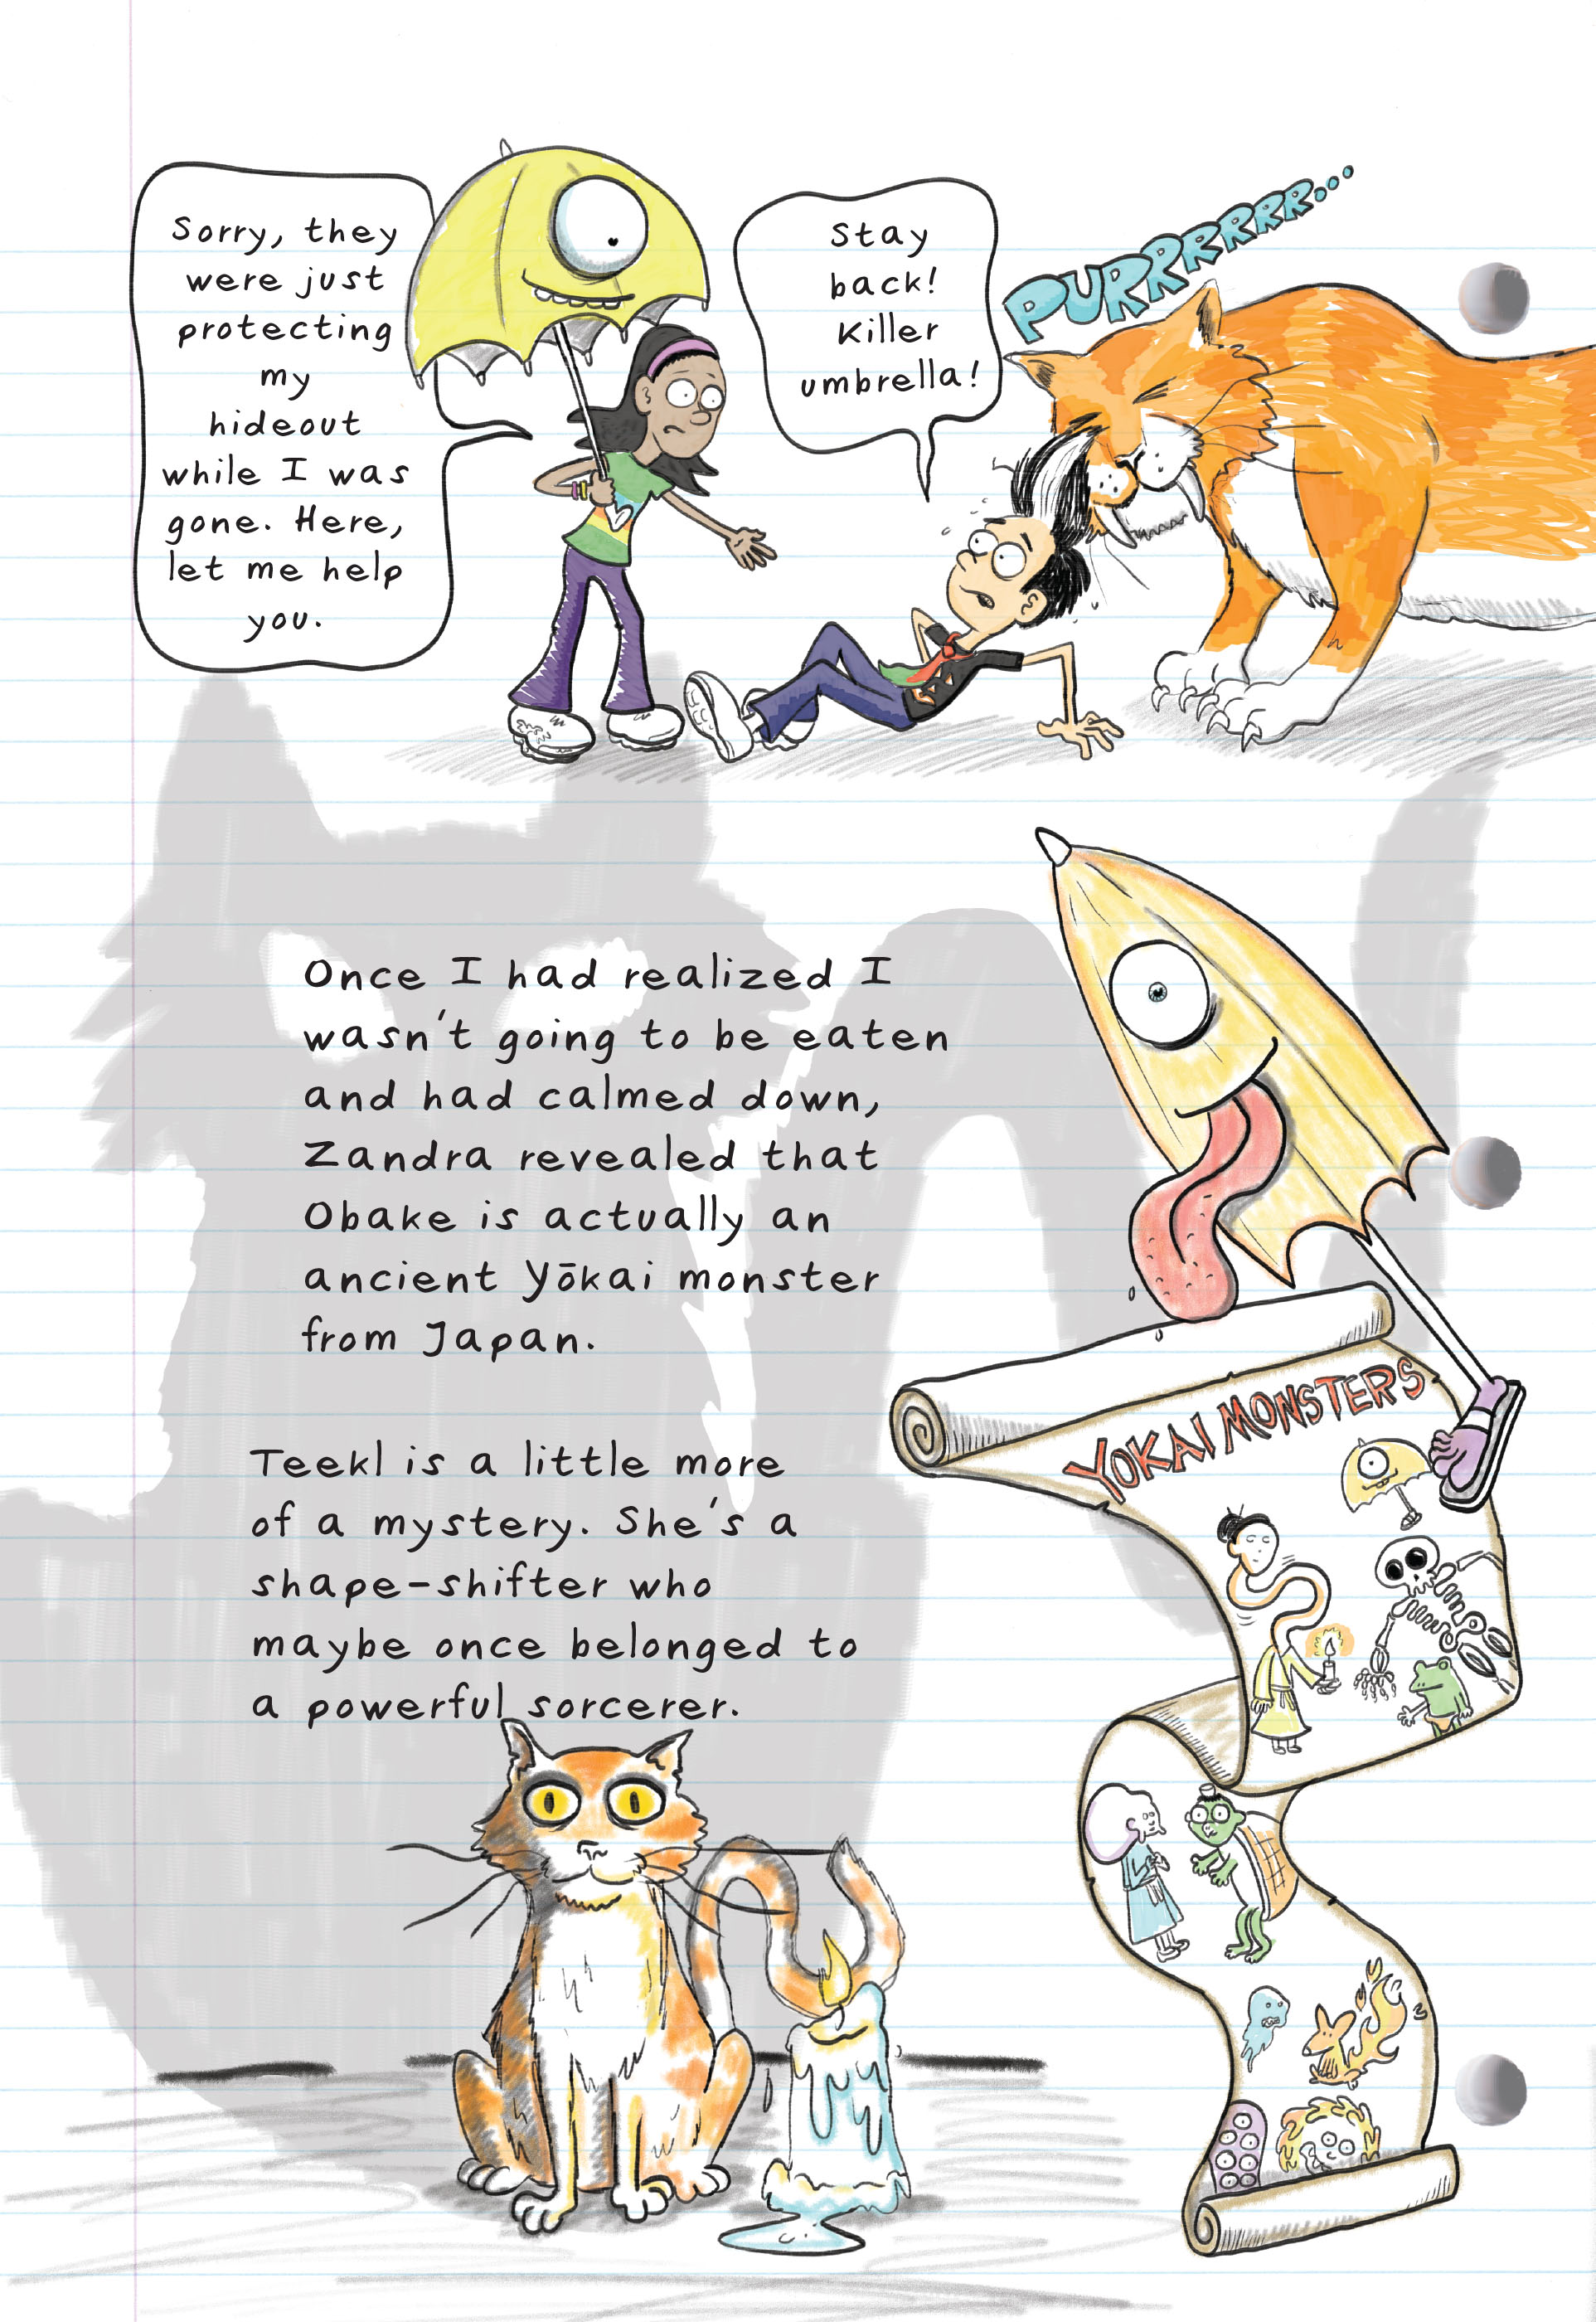 Sorry, they
were just
protecting
my
hideout
while I was
gone. Here,
let me help
you.
Stay
back!
Killer
umbrella!
PURRRRRRR...
Once I had realized I
wasn't going to be eaten
and had calmed down,
Zandra revealed that
Obake is actually an
ancient Yōkai monster
from Japan.
YOKAI MONSTERS
Teekl is a little more
of a mystery. She's a
shape-shifter who
maybe once belonged to
a powerful sorcerer.